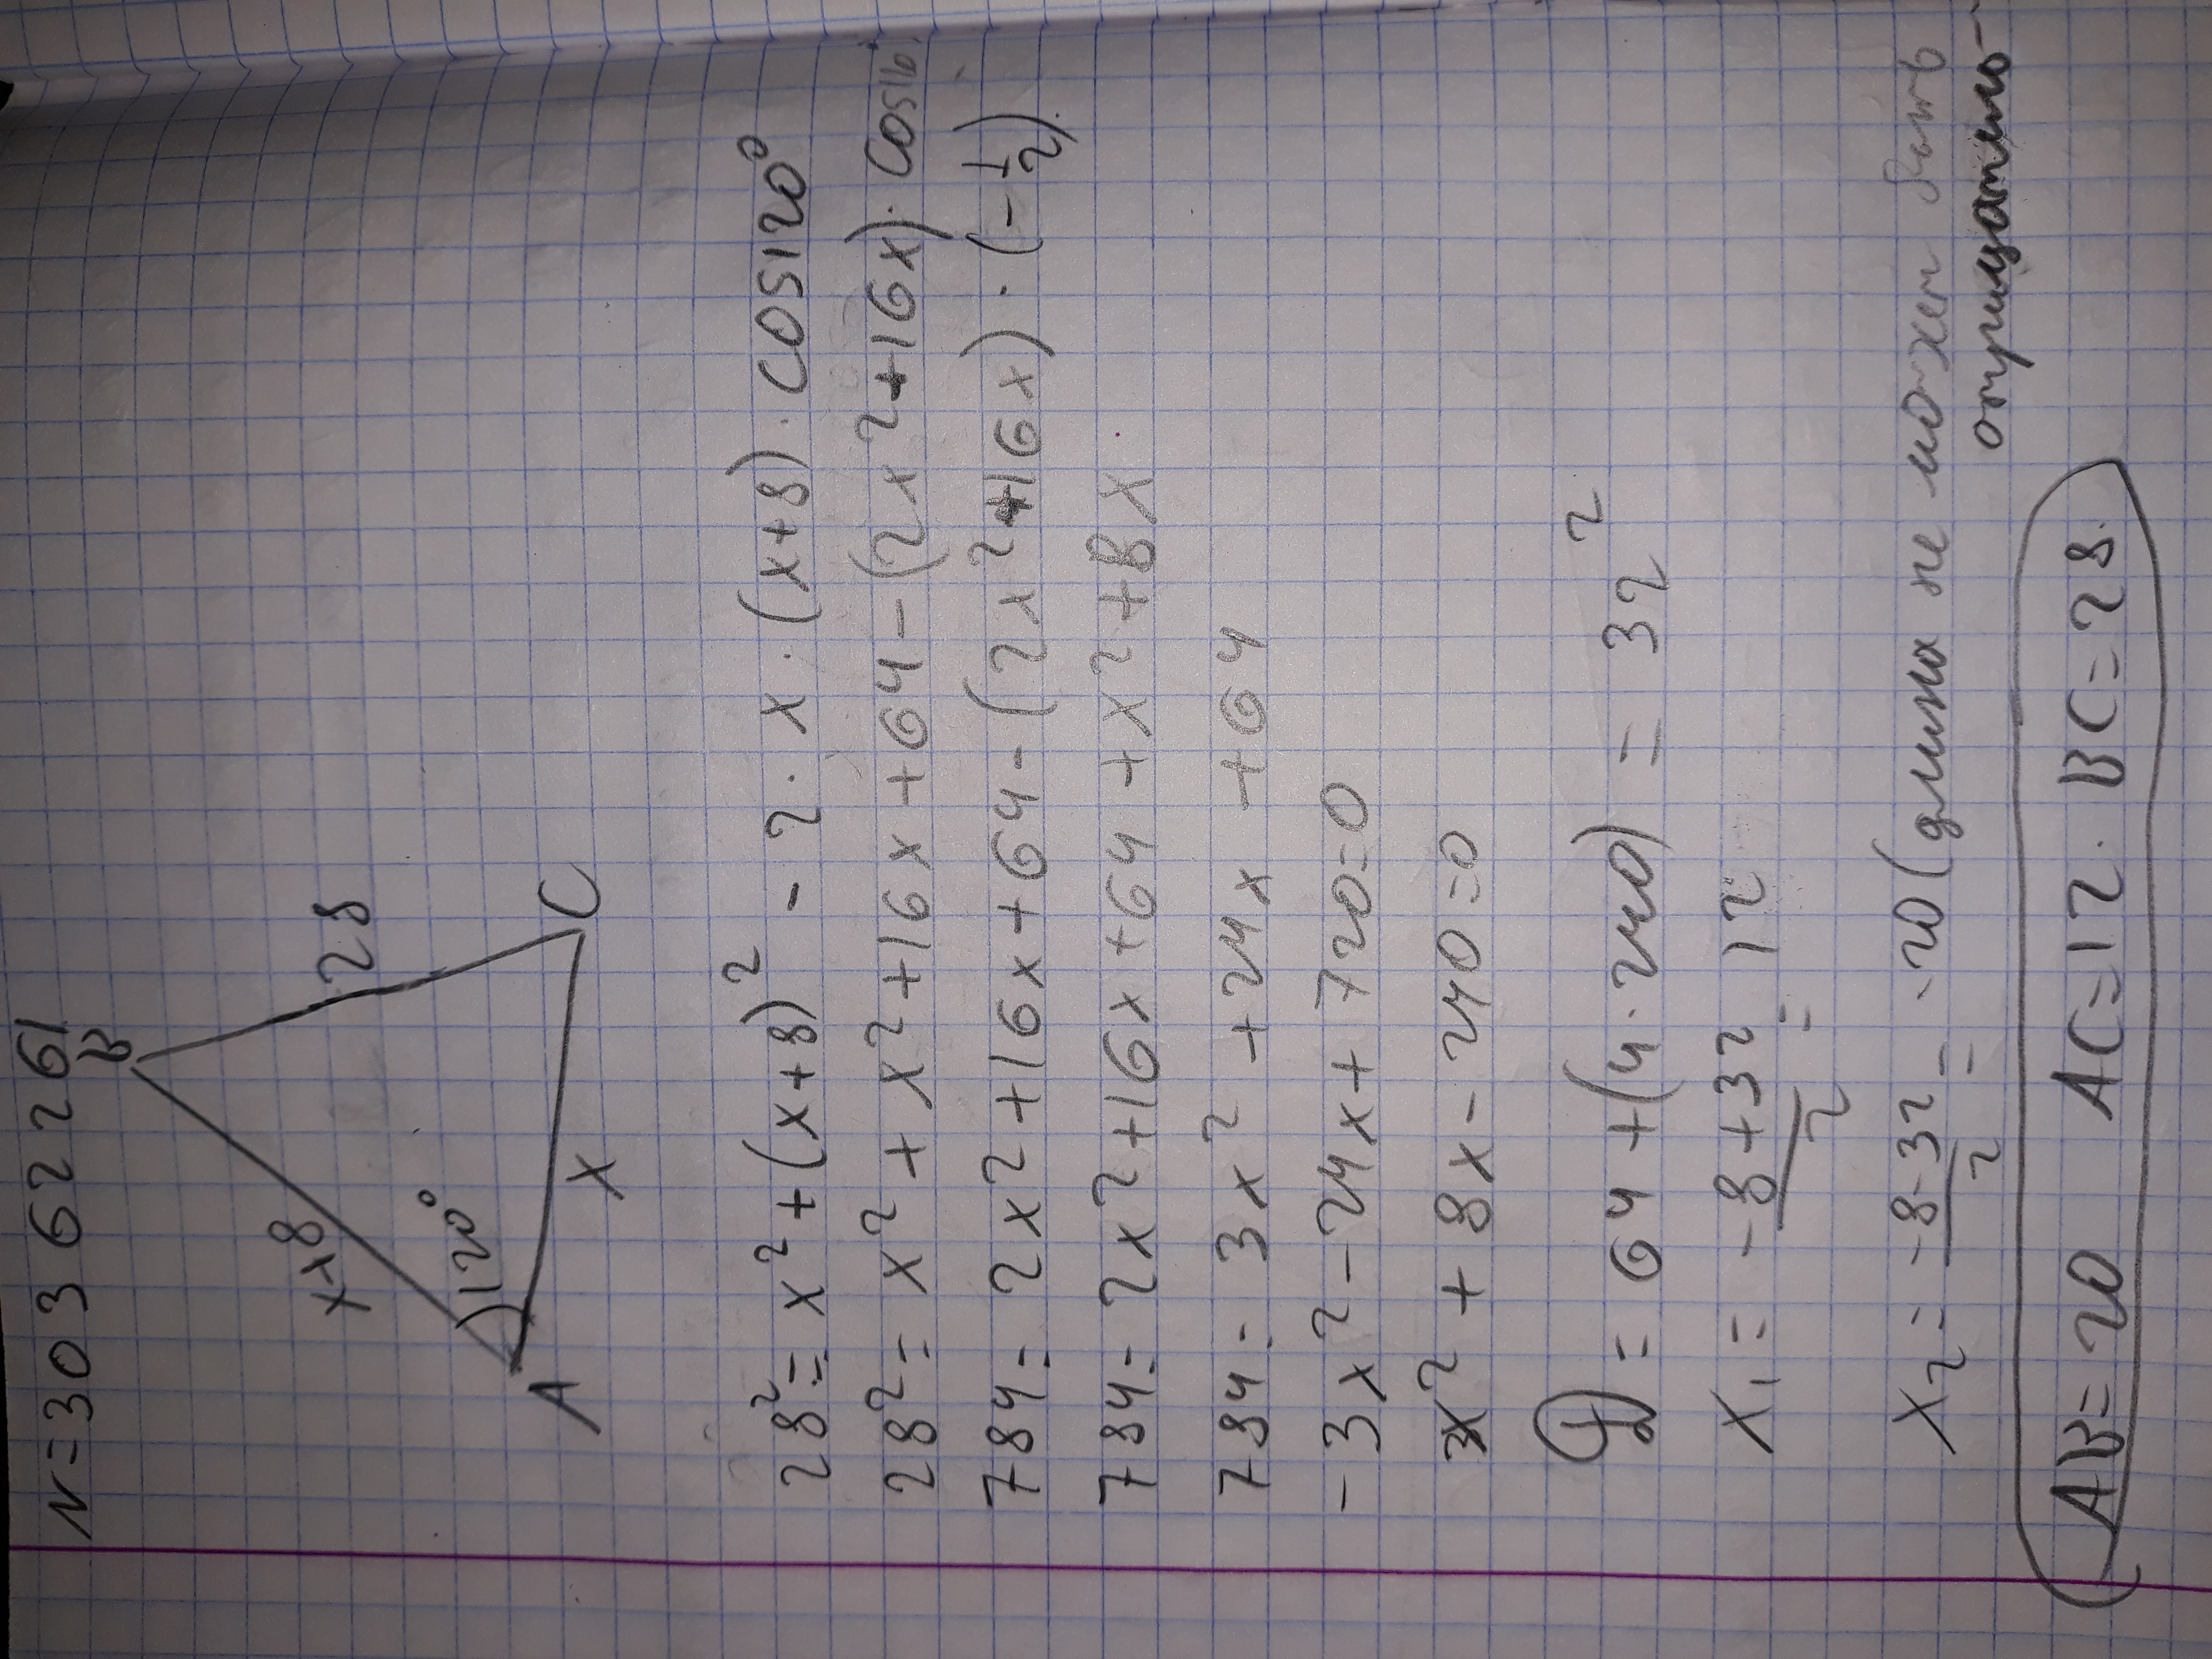 N=303 62261
B
x+8
28
120°
A
x
C
28² = x² + (x+8)² - 2 · x · (x+8) · cos120°
28² = x² + x² + 16x + 64 - (2x² + 16x) · cos
784 = 2x² + 16x + 64 - (2x² + 16x) · (-1/2)
784 = 2x² + 16x + 64 + x² + 8x
784 = 3x² + 24x + 64
-3x² - 24x + 720 = 0
x² + 8x - 240 = 0
D = 64 + (4·240) = 32²
x₁ = (-8+32)/2 = 12
x₂ = (-8-32)/2 = -20 (длина не может быть
отрицатель-
AB=20 AC=12. BC=28.